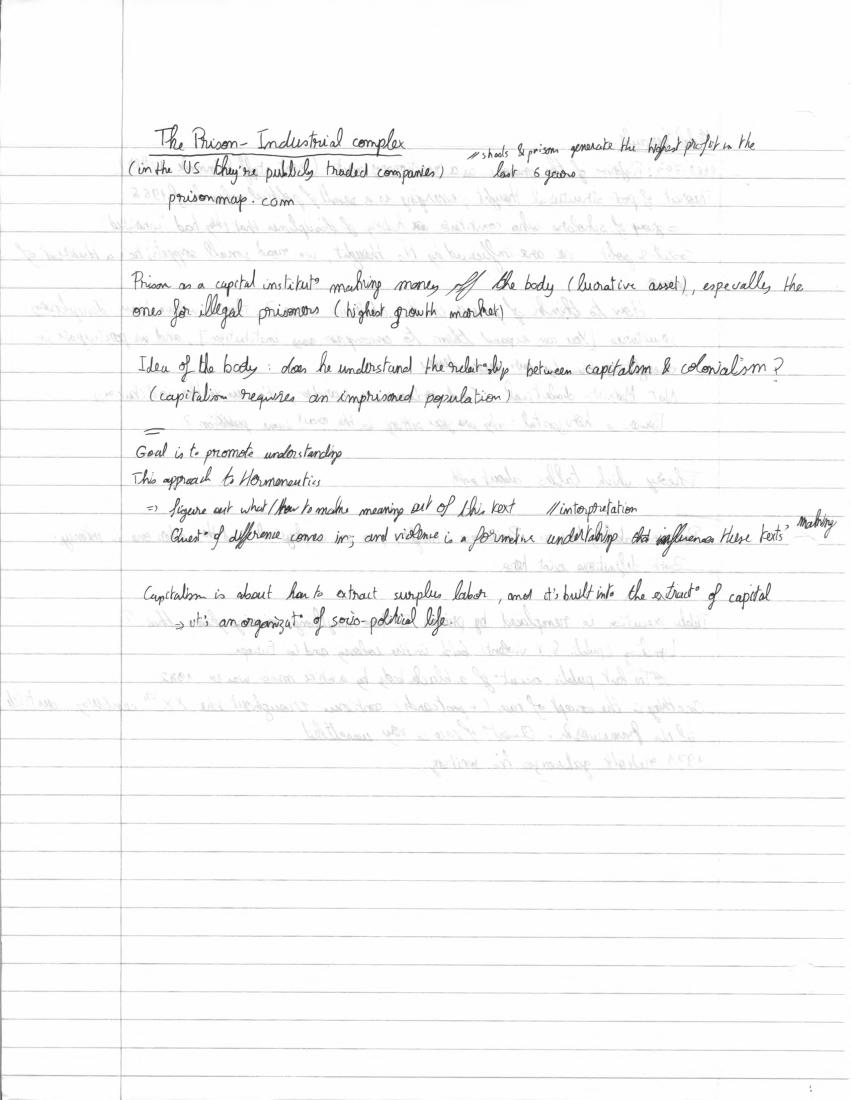 The Prison-Industrial complex
// shools & prisons generate the highest profit in the
(in the US they're publicly traded companies)
last 6 years
prisonmap.com
Prison as a capital institut° making money off the body (lucrative asset), especially the
ones for illegal prisoners (highest growth market)
Idea of the body: does he understand the relat°ship between capitalism & colonialism?
(capitalism requires an imprisoned population)
Goal is to promote understanding
This approach to Hermeneutics
=> figure out what/how to make meaning out of this text //interpretation
Quest° of difference comes in, and violence is a formative undertaking that influences these texts' making
Capitalism is about how to extract surplus labor, and it's built into the extract° of capital
→ it's an organizat° of socio-political life.